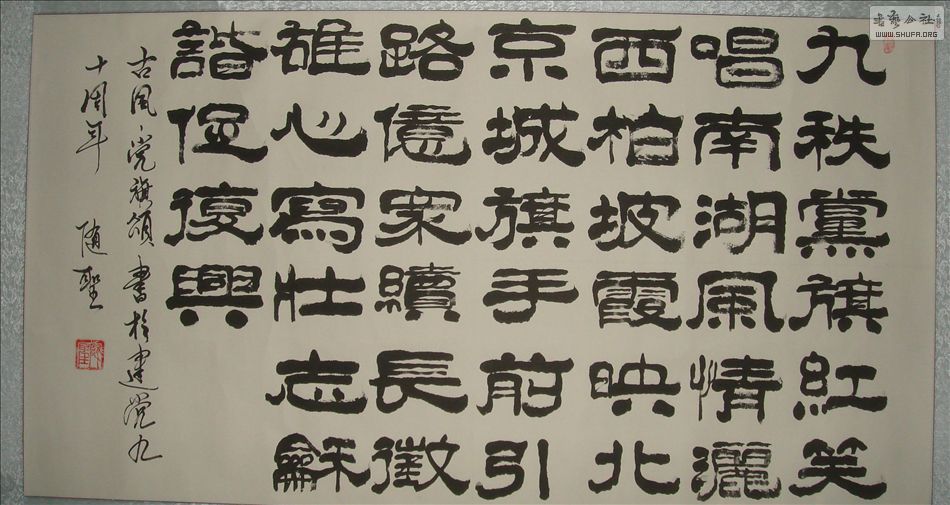 九秩黨旗紅笑
唱南湖風情灑
西柏坡霞映北
京城旗手前引
路億衆續長徵
雄心寫壯志龢
諧促復興
古風党旗頌 書於建党九
十周年 随聖
书艺公社
WWW.SHUFA.ORG